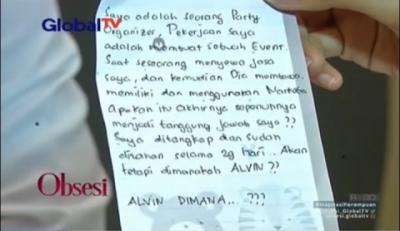 GlobalTV
Saya adalah seorang Party
Organizer, Pekerjaan Saya
adalah membuat sebuah Event.
Saat seseorang menyewa jasa
saya, dan kemudian Dia membawa,
memiliki dan menggunakan Narkoba
Apakah itu akhirnya sepenuhnya
menjadi tanggung jawab saya ??
Saya ditangkap dan sudah
ditahan selama 29 hari... Akan
tetapi dimanakah ALVIN??
ALVIN DIMANA... ???
Obsesi
#InspirasiPerempuan
GlobalTV
obsesi.globaltv